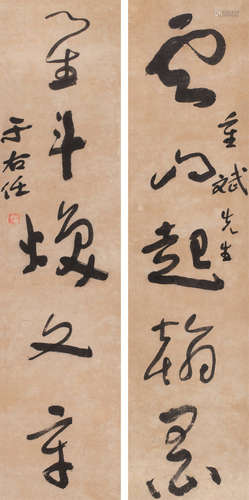 雲山起翰墨
重斌先生
星斗煥文章
于右任